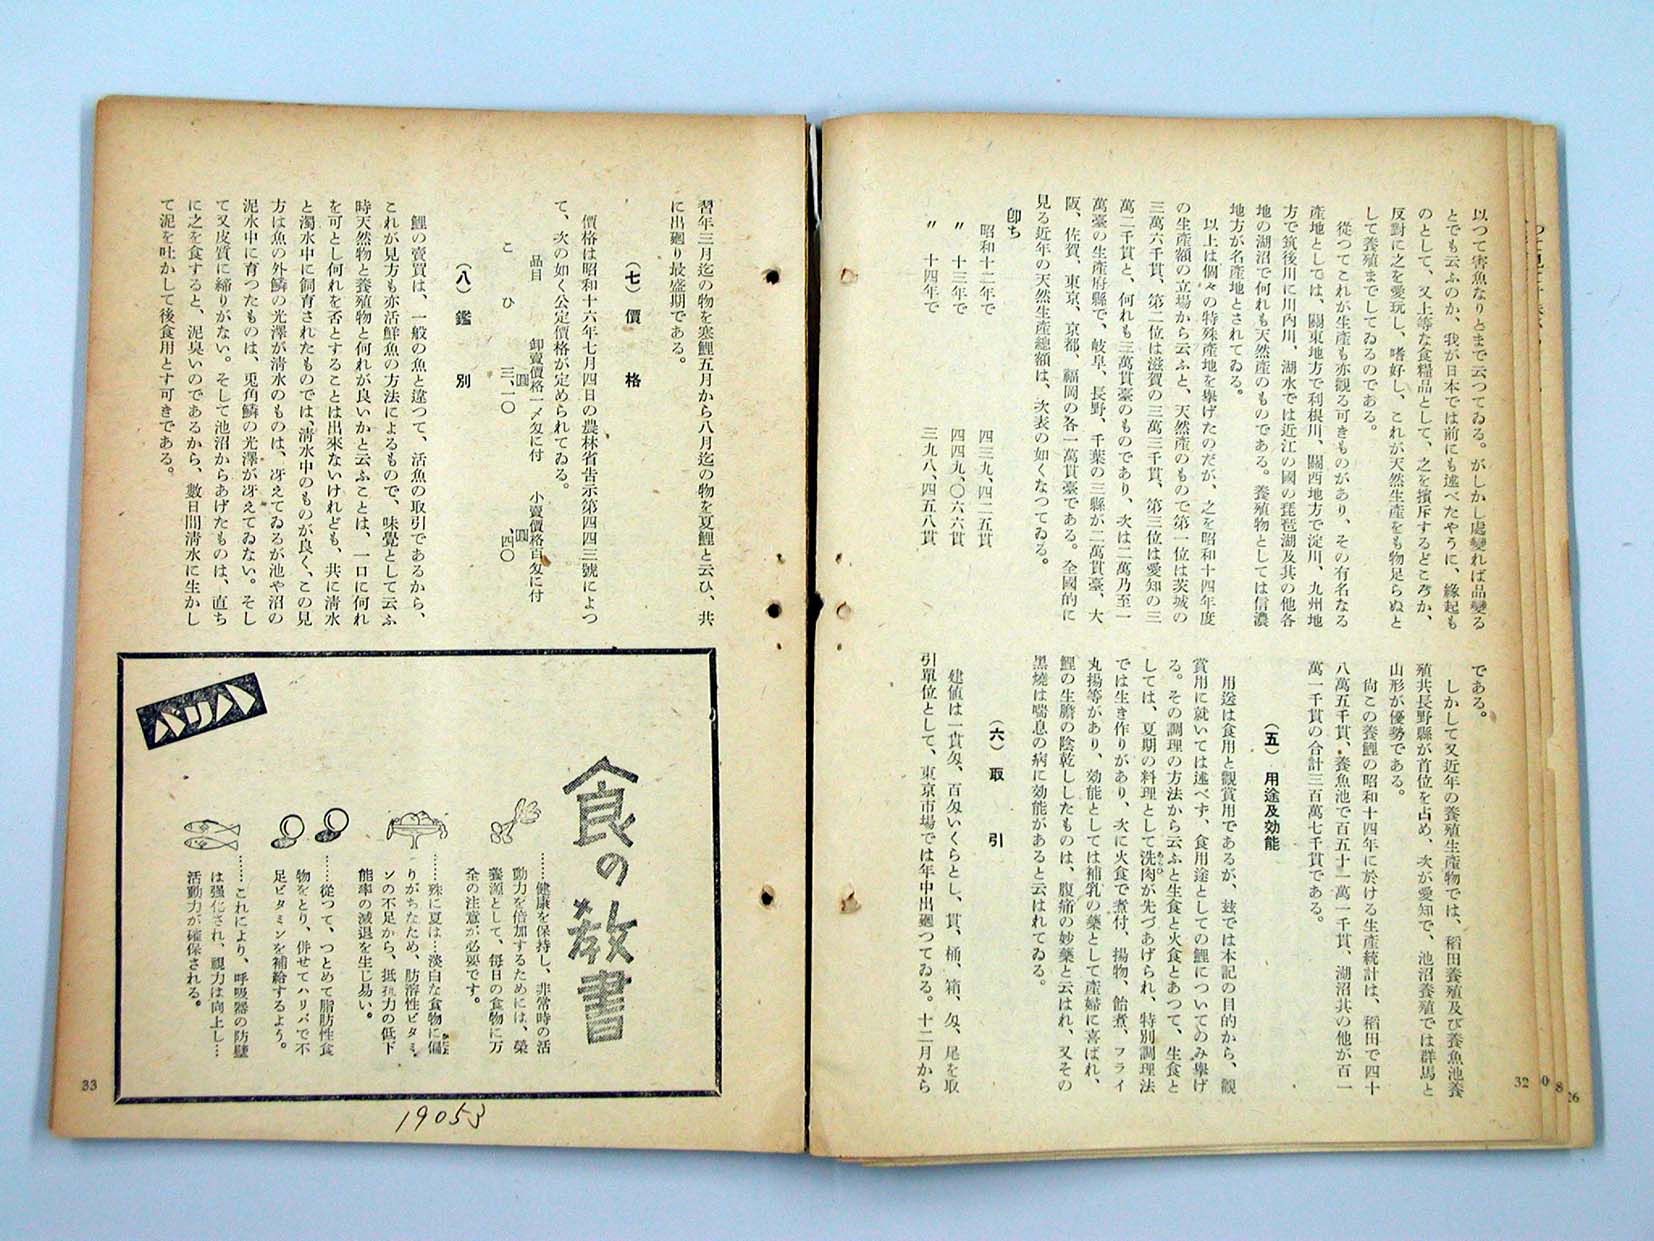 以つて害魚なりとまで云つてゐる。がしかし處變れば品變る
とでも云ふのか、我が日本では前にも述べたやうに、緣起も
のとして、又上等な食糧品として、之を擯斥するどころか、
反對に之を愛玩し、嗜好し、これが天然生產をも物足らぬと
して養殖までしてゐるのである。
從つてこれが生產も亦觀る可きものがあり、その有名なる
產地としては、關東地方で利根川、關西地方で淀川、九州地
方で筑後川に川內川、湖水では近江の國の琵琶湖及其の他各
地の湖沼で何れも天然產のものである。養殖物としては信濃
地方が名產地とされてゐる。
以上は個々の特殊產地を擧げたのだが、之を昭和十四年度
の生產額の立場から云ふと、天然產のもので第一位は茨城の
三萬六千貫、第二位は滋賀の三萬三千貫、第三位は愛知の三
萬二千貫と、何れも三萬貫臺のものであり、次は二萬乃至一
萬臺の生產府縣で、岐阜、長野、千葉の三縣が二萬貫臺、大
阪、佐賀、東京、京都、福岡の各一萬貫臺である。全國的に
見る近年の天然生產總額は、次表の如くなつてゐる。
卽ち
昭和十二年で 四三九、四二五貫
〃 十三年で 四四九、〇六六貫
〃 十四年で 三九八、四五八貫
である。
しかして又近年の養殖生產物では、稻田養殖及び養魚池養
殖共長野縣が首位を占め、次が愛知で、池沼養殖では群馬と
山形が優勢である。
尙この養鯉の昭和十四年に於ける生產統計は、稻田で四十
八萬五千貫、養魚池で百五十一萬一千貫、湖沼其の他が百一
萬一千貫の合計三百萬七千貫である。
(五) 用途及効能
用途は食用と觀賞用であるが、玆では本記の目的から、觀
賞用に就いては述べず、食用途としての鯉についてのみ擧げ
る。その調理の方法から云ふと生食と火食とあつて、生食と
しては、夏期の料理として洗肉が先づあげられ、特別調理法
では生き作りがあり、次に火食で煮付、揚物、飴煮、フライ
丸揚等があり、効能としては補乳の藥として產婦に喜ばれ、
鯉の生膽の陰乾ししたものは、腹痛の妙藥と云はれ、又その
黑燒は喘息の病に効能があると云はれてゐる。
(六) 取引
建値は一貫匁、百匁いくらとし、貫、桶、箱、匁、尾を取
引單位として、東京市場では年中出廻つてゐる。十二月から
32
0
8
26
習年三月迄の物を寒鯉五月から八月迄の物を夏鯉と云ひ、共
に出廻り最盛期である。
(七) 價格
價格は昭和十六年七月四日の農林省吿示第四四三號によつ
て、次の如く公定價格が定められてゐる。
品目 卸賣價格一〆匁に付 小賣價格百匁に付
圓 圓
こひ 三、一〇 、四〇
(八) 鑑別
鯉の賣買は、一般の魚と違つて、活魚の取引であるから、
これが見方も亦活鮮魚の方法によるもので、味覺として云ふ
時天然物と養殖物と何れが良いかと云ふことは、一口に何れ
を可とし何れを否とすることは出來ないけれども、共に淸水
と濁水中に飼育されたものでは、淸水中のものが良く、この見
方は魚の外鱗の光澤が淸水のものは、冴えてゐるが池や沼の
泥水中に育つたものは、兎角鱗の光澤が冴えてゐない。そし
て又皮質に締りがない。そして池沼からあげたものは、直ち
に之を食すると、泥臭いのであるから、數日間淸水に生かし
て泥を吐かして後食用とす可きである。
食の教書
……健康を保持し、非常時の活
動力を倍加するためには、榮
養源として、每日の食物に萬
全の注意が必要です。
……殊に夏は…淡白な食物に偏
りがちなため、肪溶性ビタミ
ンの不足から、抵抗力の低下
能率の減退を生じ易い。
……從つて、つとめて脂肪性食
物をとり、併せてハリバで不
足ビタミンを補給するよう。
……これにより、呼吸器の防壁
は强化され、視力は向上し…
活動力が確保される。
ハリバ
33
19053